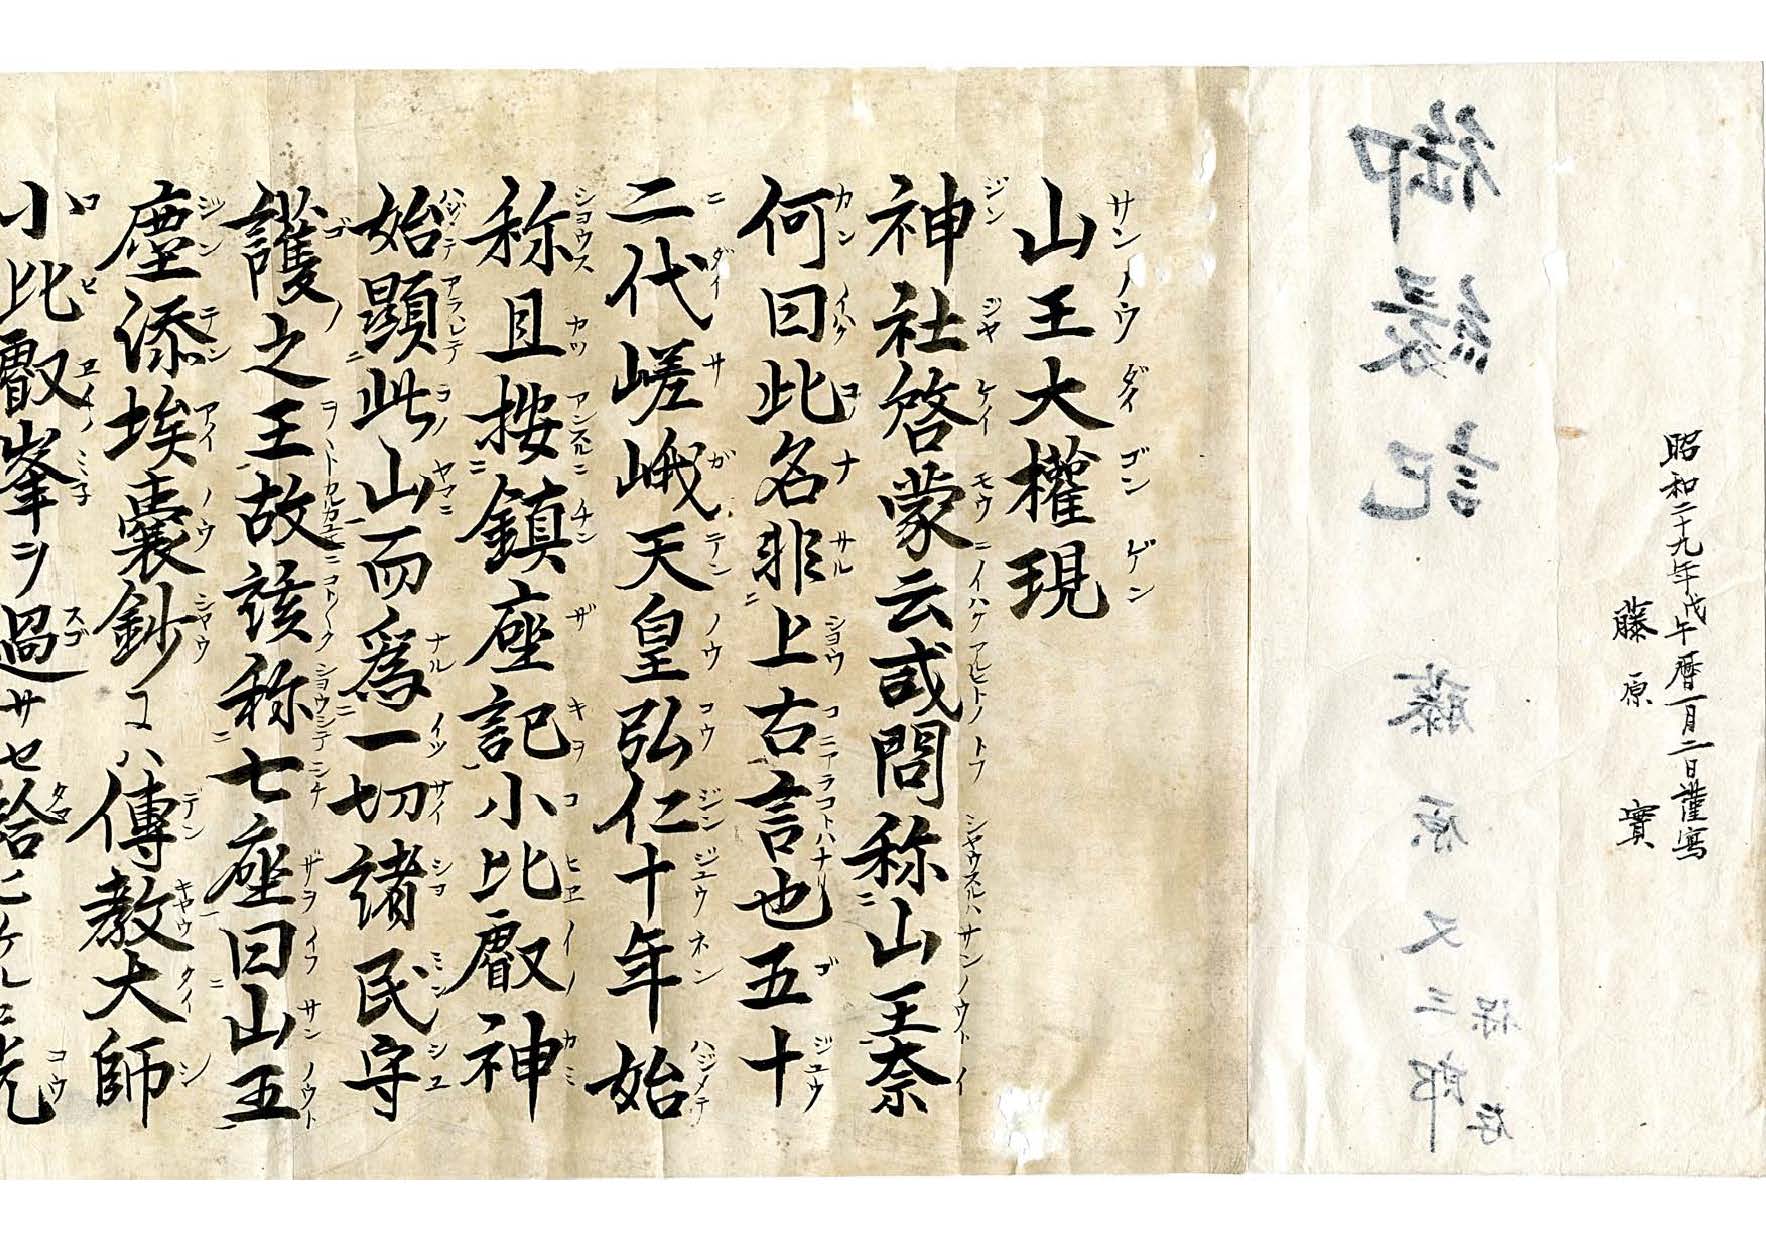 昭和二十九年戊午暦一月二日謹寫
藤原 實
御縁記 藤原又三郎
山王大權現
神社啓蒙云或問称山王奈
何曰此名非上古言也五十
二代嵯峨天皇弘仁十年始
称且按鎮座記小比叡神
始顕此山而爲一切諸民守
護之王故該称七座曰山王
塵添埃嚢鈔ニハ傳教大師
小比叡峯ヲ過サセ給ヒケルニ光